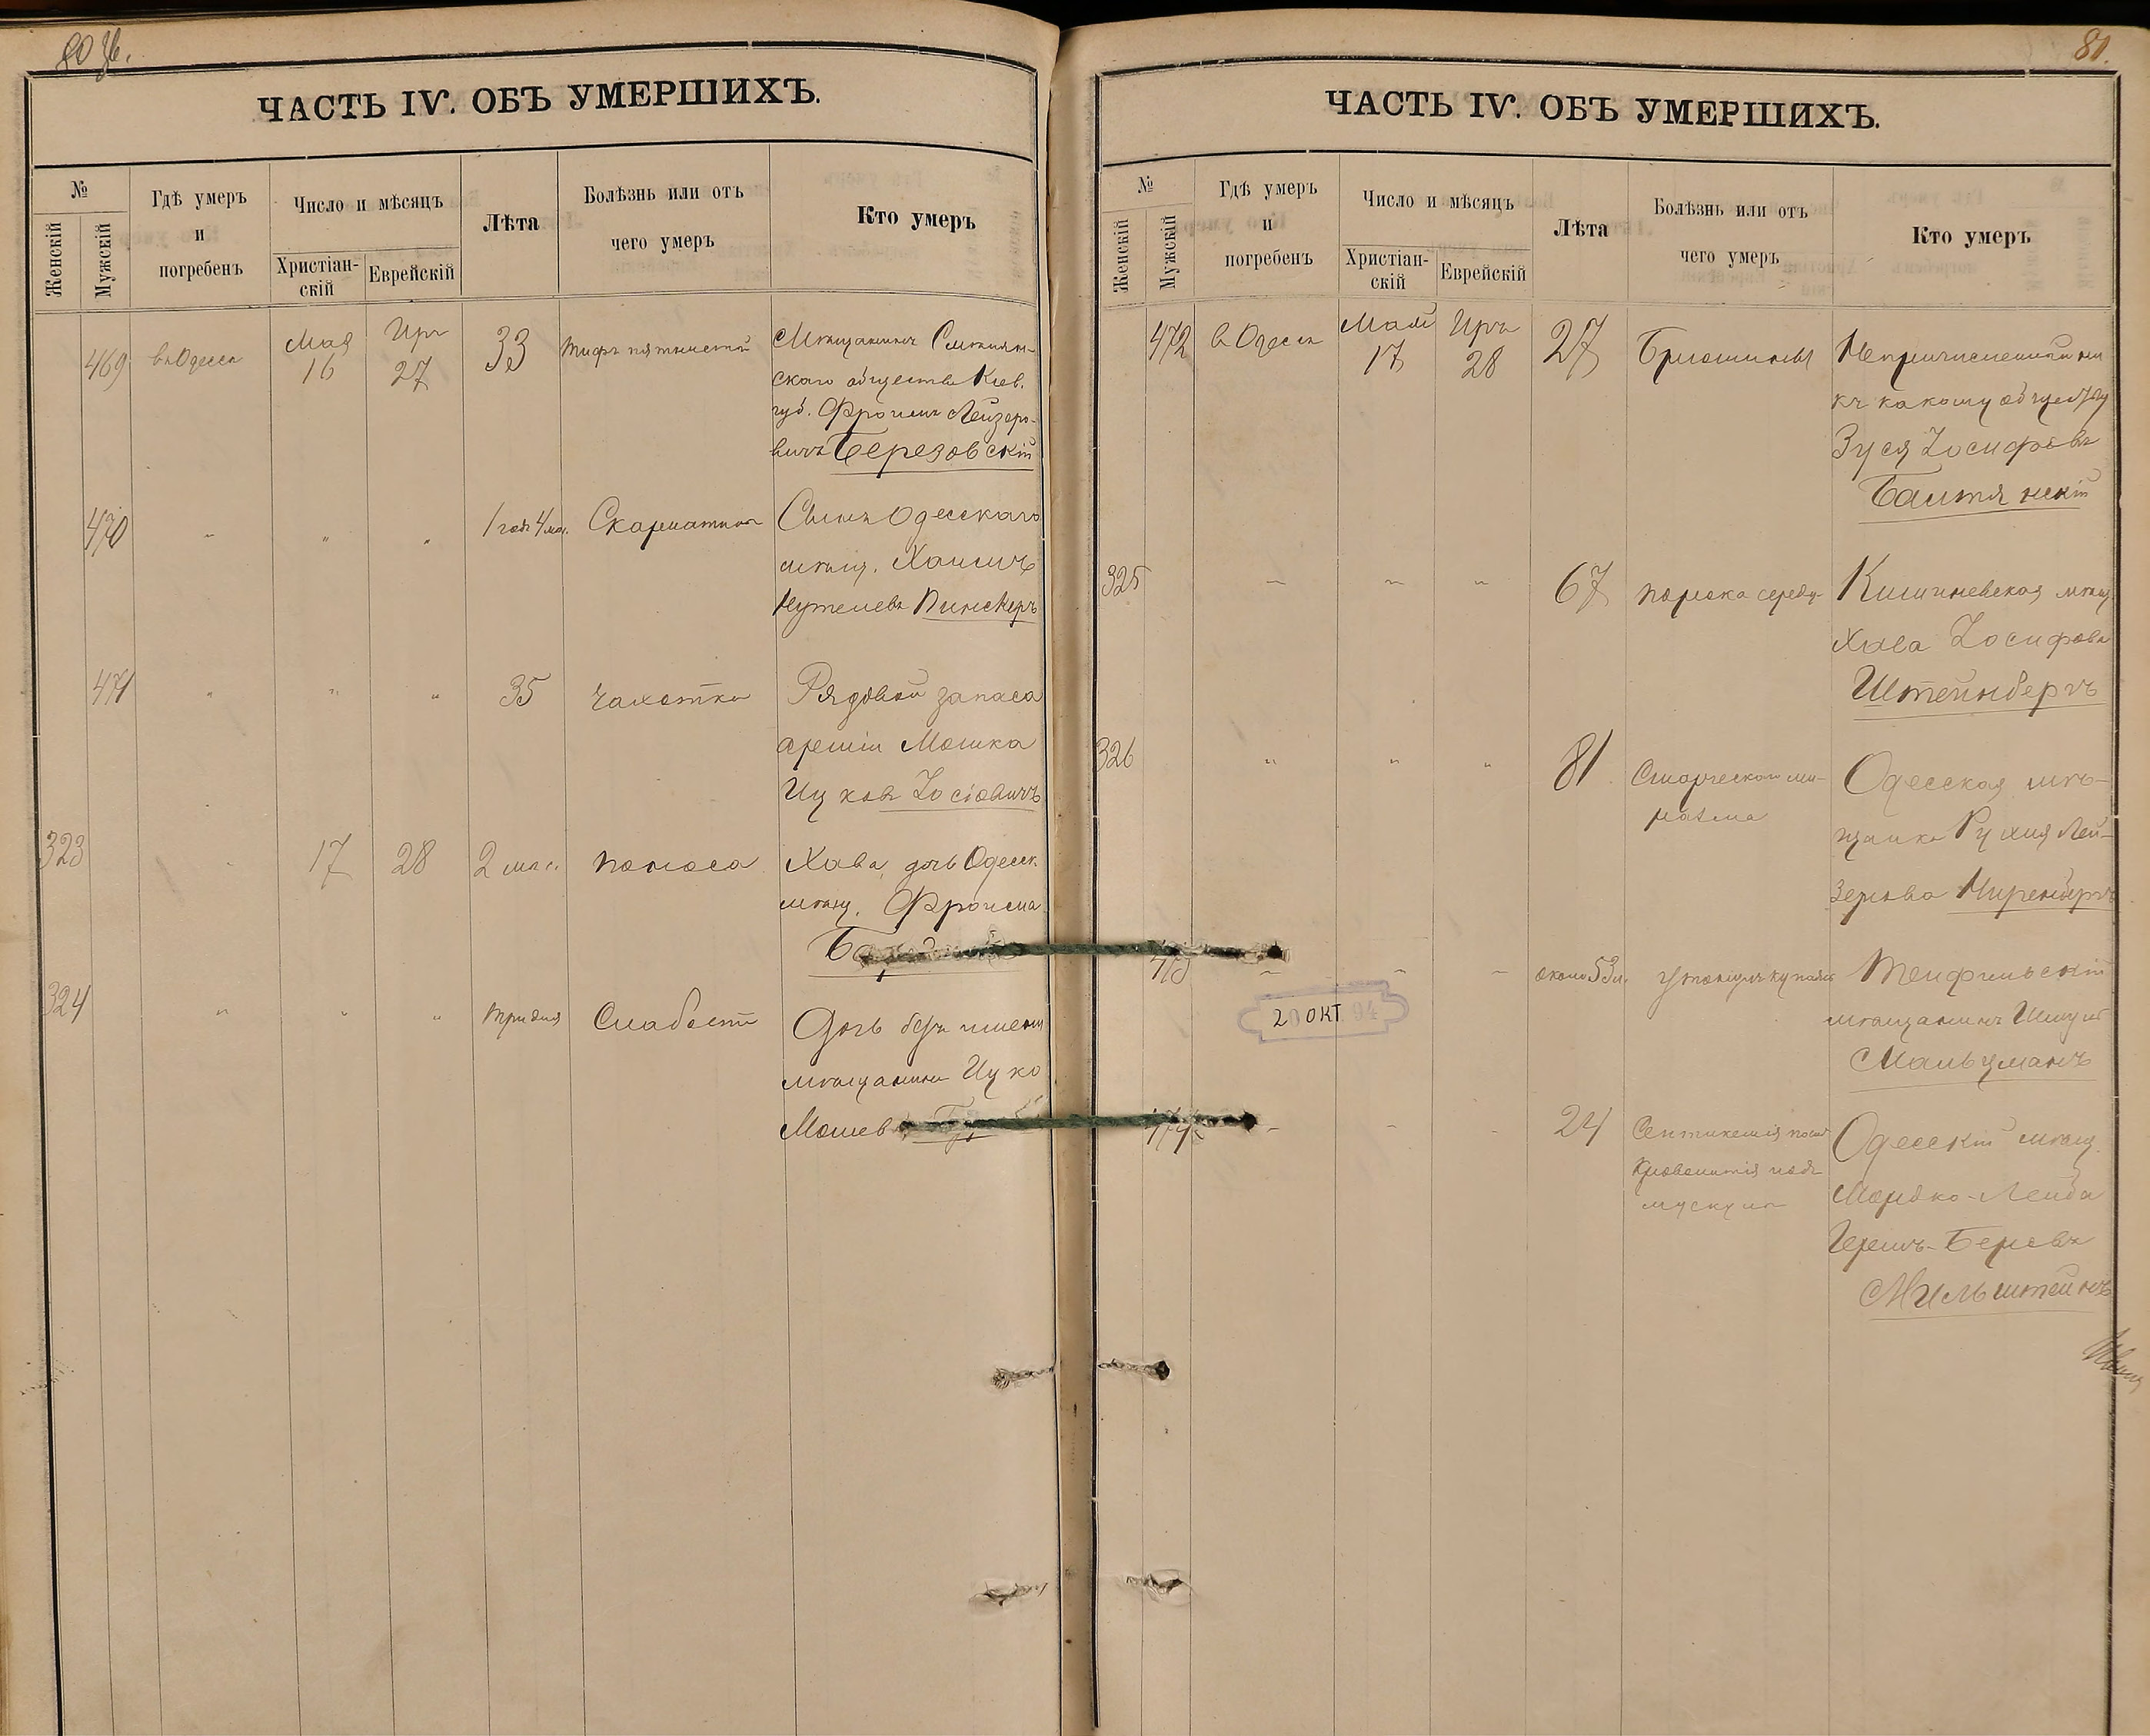 80 об.
ЧАСТЬ IV. ОБЪ УМЕРШИХЪ.
№
Женскій
Мужскій
Гдѣ умеръ
и
погребенъ
Число и мѣсяцъ
Христіан-
скій
Еврейскій
Лѣта
Болѣзнь или отъ
чего умеръ
Кто умеръ
469
въ Одессѣ
Мая
16
Иръ
27
33
Тифъ пятнистой
Мѣщанинъ Смѣлян-
скаго общества Кіев.
губ. Фроимъ Лейзеро-
вичъ Березовскій
470
„
„
„
1 годъ 4 мѣс.
Скарлатина
Сынъ Одесскаго
мѣщ. Хаимъ
Нутелевъ Пинскеръ
471
„
„
„
35
Чахотка
Рядовой запаса
арміи Мошка
Ицковъ Іосіовичъ
323
„
17
28
2 мѣс.
Поноса
Хава, дочь Одесск.
мѣщ. Фроима
324
„
„
„
три дня
Слабости
Дочь безъ имени
мѣщанина Ицко
Мошев
81.
ЧАСТЬ IV. ОБЪ УМЕРШИХЪ.
№
Женскій
Мужскій
Гдѣ умеръ
и
погребенъ
Число и мѣсяцъ
Христіан-
скій
Еврейскій
Лѣта
Болѣзнь или отъ
чего умеръ
Кто умеръ
472
въ Одессѣ
Маій
17
Иръ
28
27
Брюшины
Непричисленный ни
къ какому обществу
Зуся Іосифовъ
Баштянскій
325
„
„
„
67
порока сердц.
Кишиневская мѣщ.
Хава Іосифова
Штейнбергъ
326
„
„
„
81
Старческаго ма-
разма
Одесская мѣ-
щанка Рухля Лей-
зерова Ниренбергъ
473
„
„
„
около 53 л.
утонулъ купаясь
мѣщанинъ Шмуль
Мальцманъ
20 ОКТ 94
474
„
„
„
24
Септикемія послѣ
мускула
Одесскій мѣщ.
Мордко-Лейба
Гершъ-Беровъ
Мильштейнъ